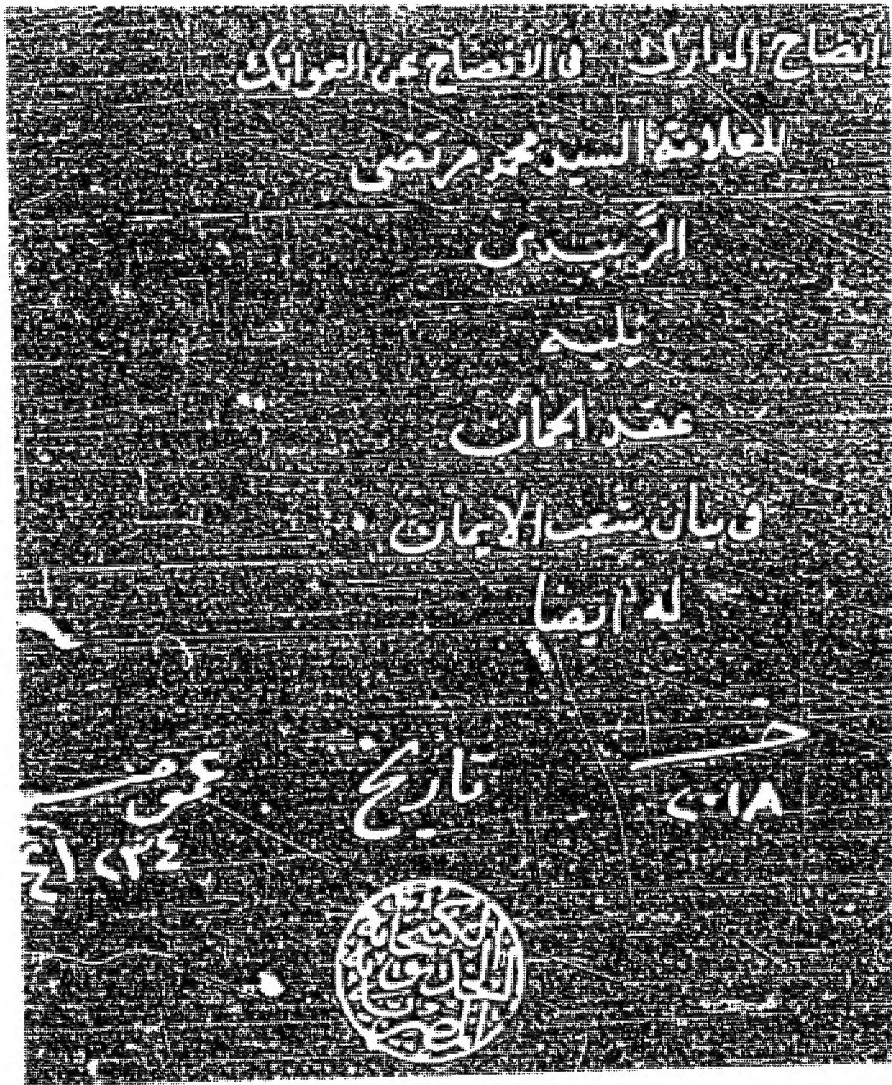 ايضاح المدارك في الافصاح عن العواتك
للعلامة السيد محمد مرتضى
الزَّبيدى
يليه
عقد الجمان
في بيان شعب الايمان
له ايضا
خـ
تاريخ
عمومى
٢٠١٨
الكتبخانة
الخديوية
المصرية